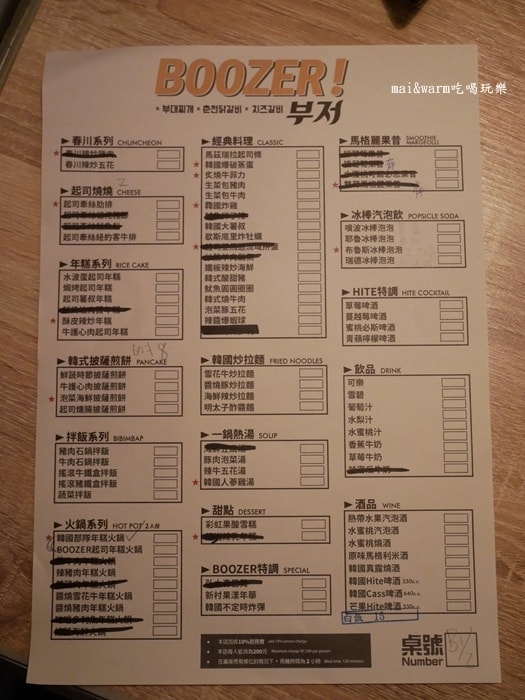 BOOZER!
mai&warm吃喝玩樂
• 부대찌개 • 춘천닭갈비 • 치즈갈비 부저
▶ 春川系列 CHUNCHEON
春川辣炒五花
▶ 起司燒燒 CHEESE
起司牽絲肋排
起司牽絲紐約客牛排
▶ 年糕系列 RICE CAKE
水波蛋起司年糕
焗烤起司年糕
起司薯叔年糕
酥皮辣炒年糕
牛護心肉起司年糕
▶ 韓式披薩煎餅 PANCAKE
鮮蔬時節披薩煎餅
牛護心肉披薩煎餅
泡菜海鮮披薩煎餅
起司爆腸披薩煎餅
▶ 拌飯系列 BIBIMBAP
豬肉石鍋拌飯
牛肉石鍋拌飯
搖滾牛鐵盒拌飯
搖滾豬鐵盒拌飯
蔬菜拌飯
▶ 火鍋系列 HOT POT / 2人份
韓國部隊年糕火鍋
BOOZER起司年糕火鍋
辣豬肉年糕火鍋
醬燒雪花牛年糕火鍋
醬燒豬肉年糕火鍋
▶ 經典料理 CLASSIC
馬茲瑞拉起司條
韓國爆破蒸蛋
炙燒牛菲力
生菜包豬肉
生菜包牛肉
韓國炸雞
韓國大薯叔
歇斯底里炸牡蠣
鐵板辣炒海鮮
韓式酸甜豬
魷魚圓圓圈圈
韓式燒牛肉
泡菜豚五花
辣醬爆蝦球
▶ 韓國炒拉麵 FRIED NOODLES
雪花牛炒拉麵
醬燒豚炒拉麵
海鮮辣炒拉麵
明太子酢醬麵
▶ 一鍋熱湯 SOUP
豚肉泡菜湯
辣牛五花湯
韓國人蔘雞湯
▶ 甜點 DESSERT
彩虹果酸雪糕
▶ BOOZER特調 SPECIAL
新村果漾年華
韓國不定時炸彈
▶ 馬格麗果昔 (SMOOTHIE MAKGEOLLI)
▶ 冰棒汽泡飲 POPSICLE SODA
噴波冰棒泡泡
耶魯冰棒泡泡
布魯斯冰棒泡泡
瑞德冰棒泡泡
▶ HITE特調 HITE COCKTAIL
草莓啤酒
蔓越莓啤酒
蜜桃必斯啤酒
青蘋檸檬啤酒
▶ 飲品 DRINK
可樂
雪碧
葡萄汁
水梨汁
水蜜桃汁
香蕉牛奶
草莓牛奶
▶ 酒品 WINE
熱帶水果汽泡酒
水蜜桃汽泡酒
水蜜桃燒酒
原味馬格利米酒
韓國真露燒酒
韓國Hite啤酒 330c.c.
韓國Cass啤酒 640c.c.
芒果Hite啤酒 330c.c.
• 本店酌收10%服務費 add 10% service charge.
• 本店每人低消為200元 Minimum charge NT.200 per person.
• 在滿座而有候位的情況下，用餐時間為2小時 Meal time: 120 minutes.
桌號
Number